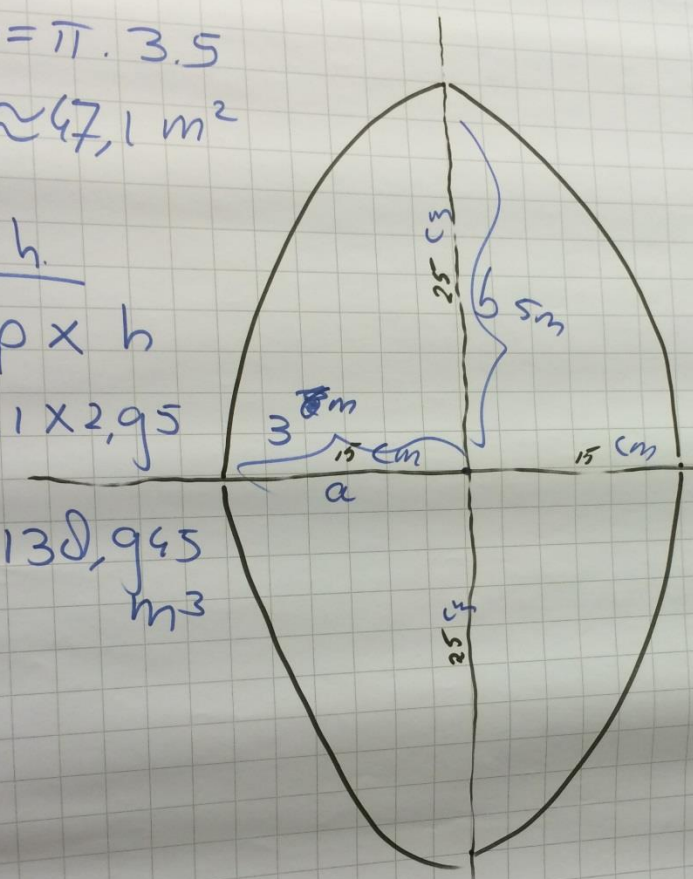 = π . 3.5
≈ 47,1 m²
h.
p x h
1 x 2,95
138,945
m³
25 cm
b 5m
3 m
15 cm
15 cm
a
25 cm